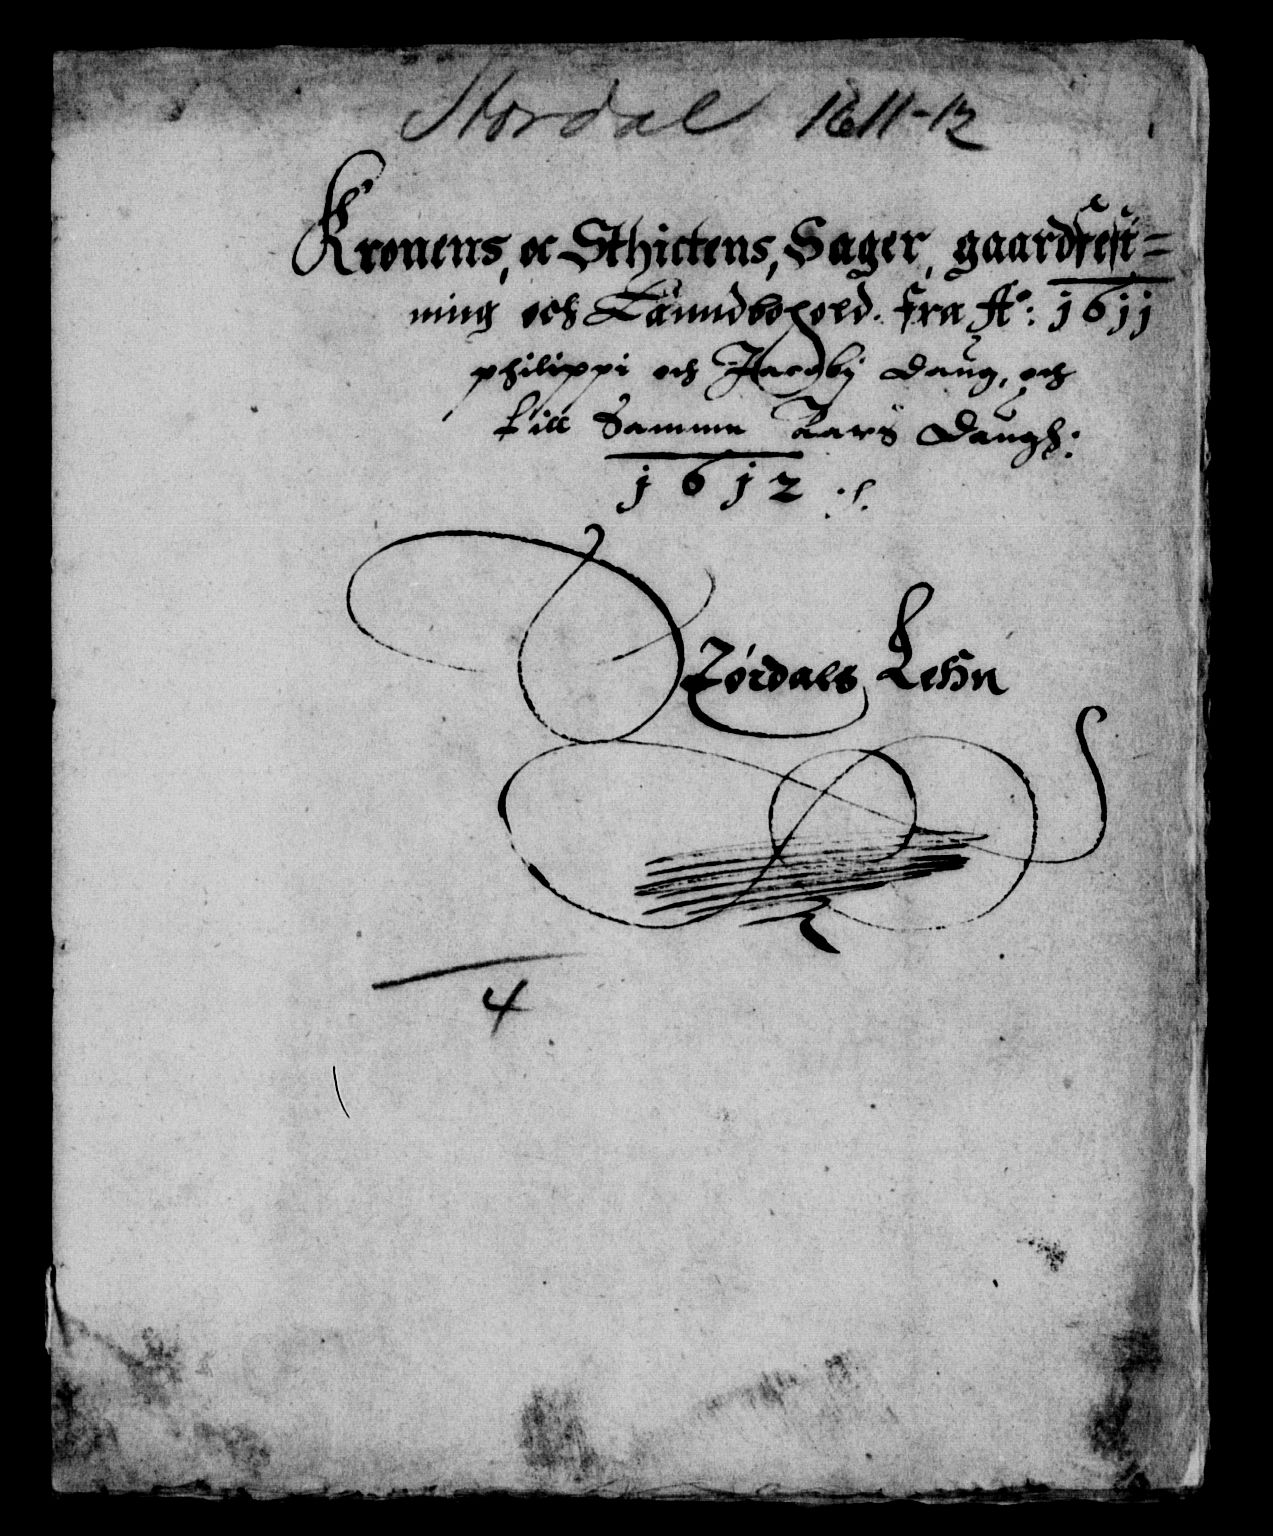 Stordal 1611-12
Kronens, oc Sthictens, Sager, gaardfest=
ning och Laundbohold. fra Aº: 1611
philippi och Jacobj Daug, och
till Samme Aars Daugh:
1612
Størdals Lehn
4